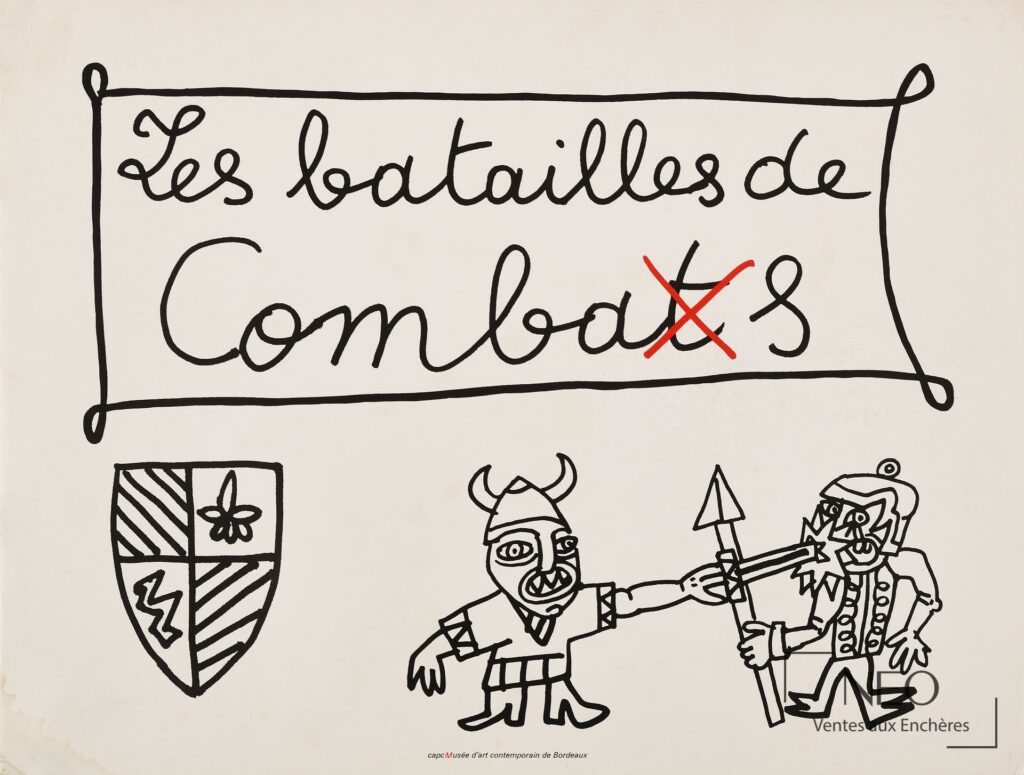 Les batailles de
Combats
capcMusée d'art contemporain de Bordeaux
NEO
Ventes aux Enchères